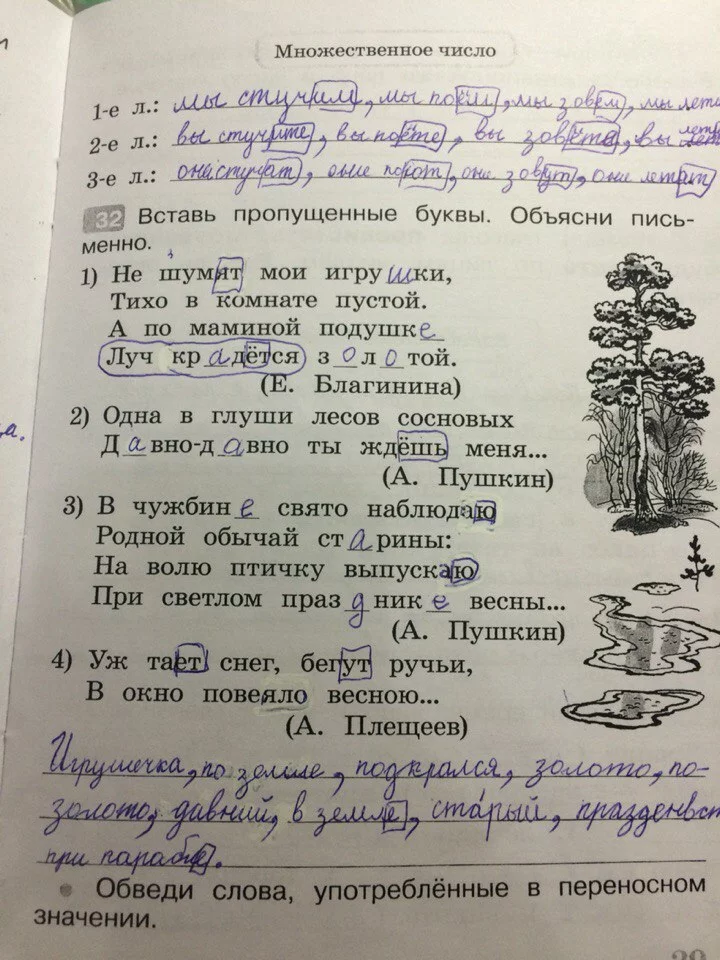 Множественное число
1-е л.: мы стучим, мы поём, мы зовём, мы лети
2-е л.: вы стучите, вы поёте, вы зовёте, вы
3-е л.: они стучат, они поют, они зовут, они летят
32 Вставь пропущенные буквы. Объясни пись-
менно.
1) Не шумят мои игрушки,
Тихо в комнате пустой.
А по маминой подушке
Луч крадётся золотой.
(Е. Благинина)
2) Одна в глуши лесов сосновых
Давно-давно ты ждёшь меня...
(А. Пушкин)
3) В чужбине свято наблюдаю
Родной обычай старины:
На волю птичку выпускаю
При светлом празднике весны...
(А. Пушкин)
4) Уж тает снег, бегут ручьи,
В окно повеяло весною...
(А. Плещеев)
Игрушечка, по земле, подкрался, золото, по-
золото, давний, в земле, старый, празденвст
при
• Обведи слова, употреблённые в переносном
значении.